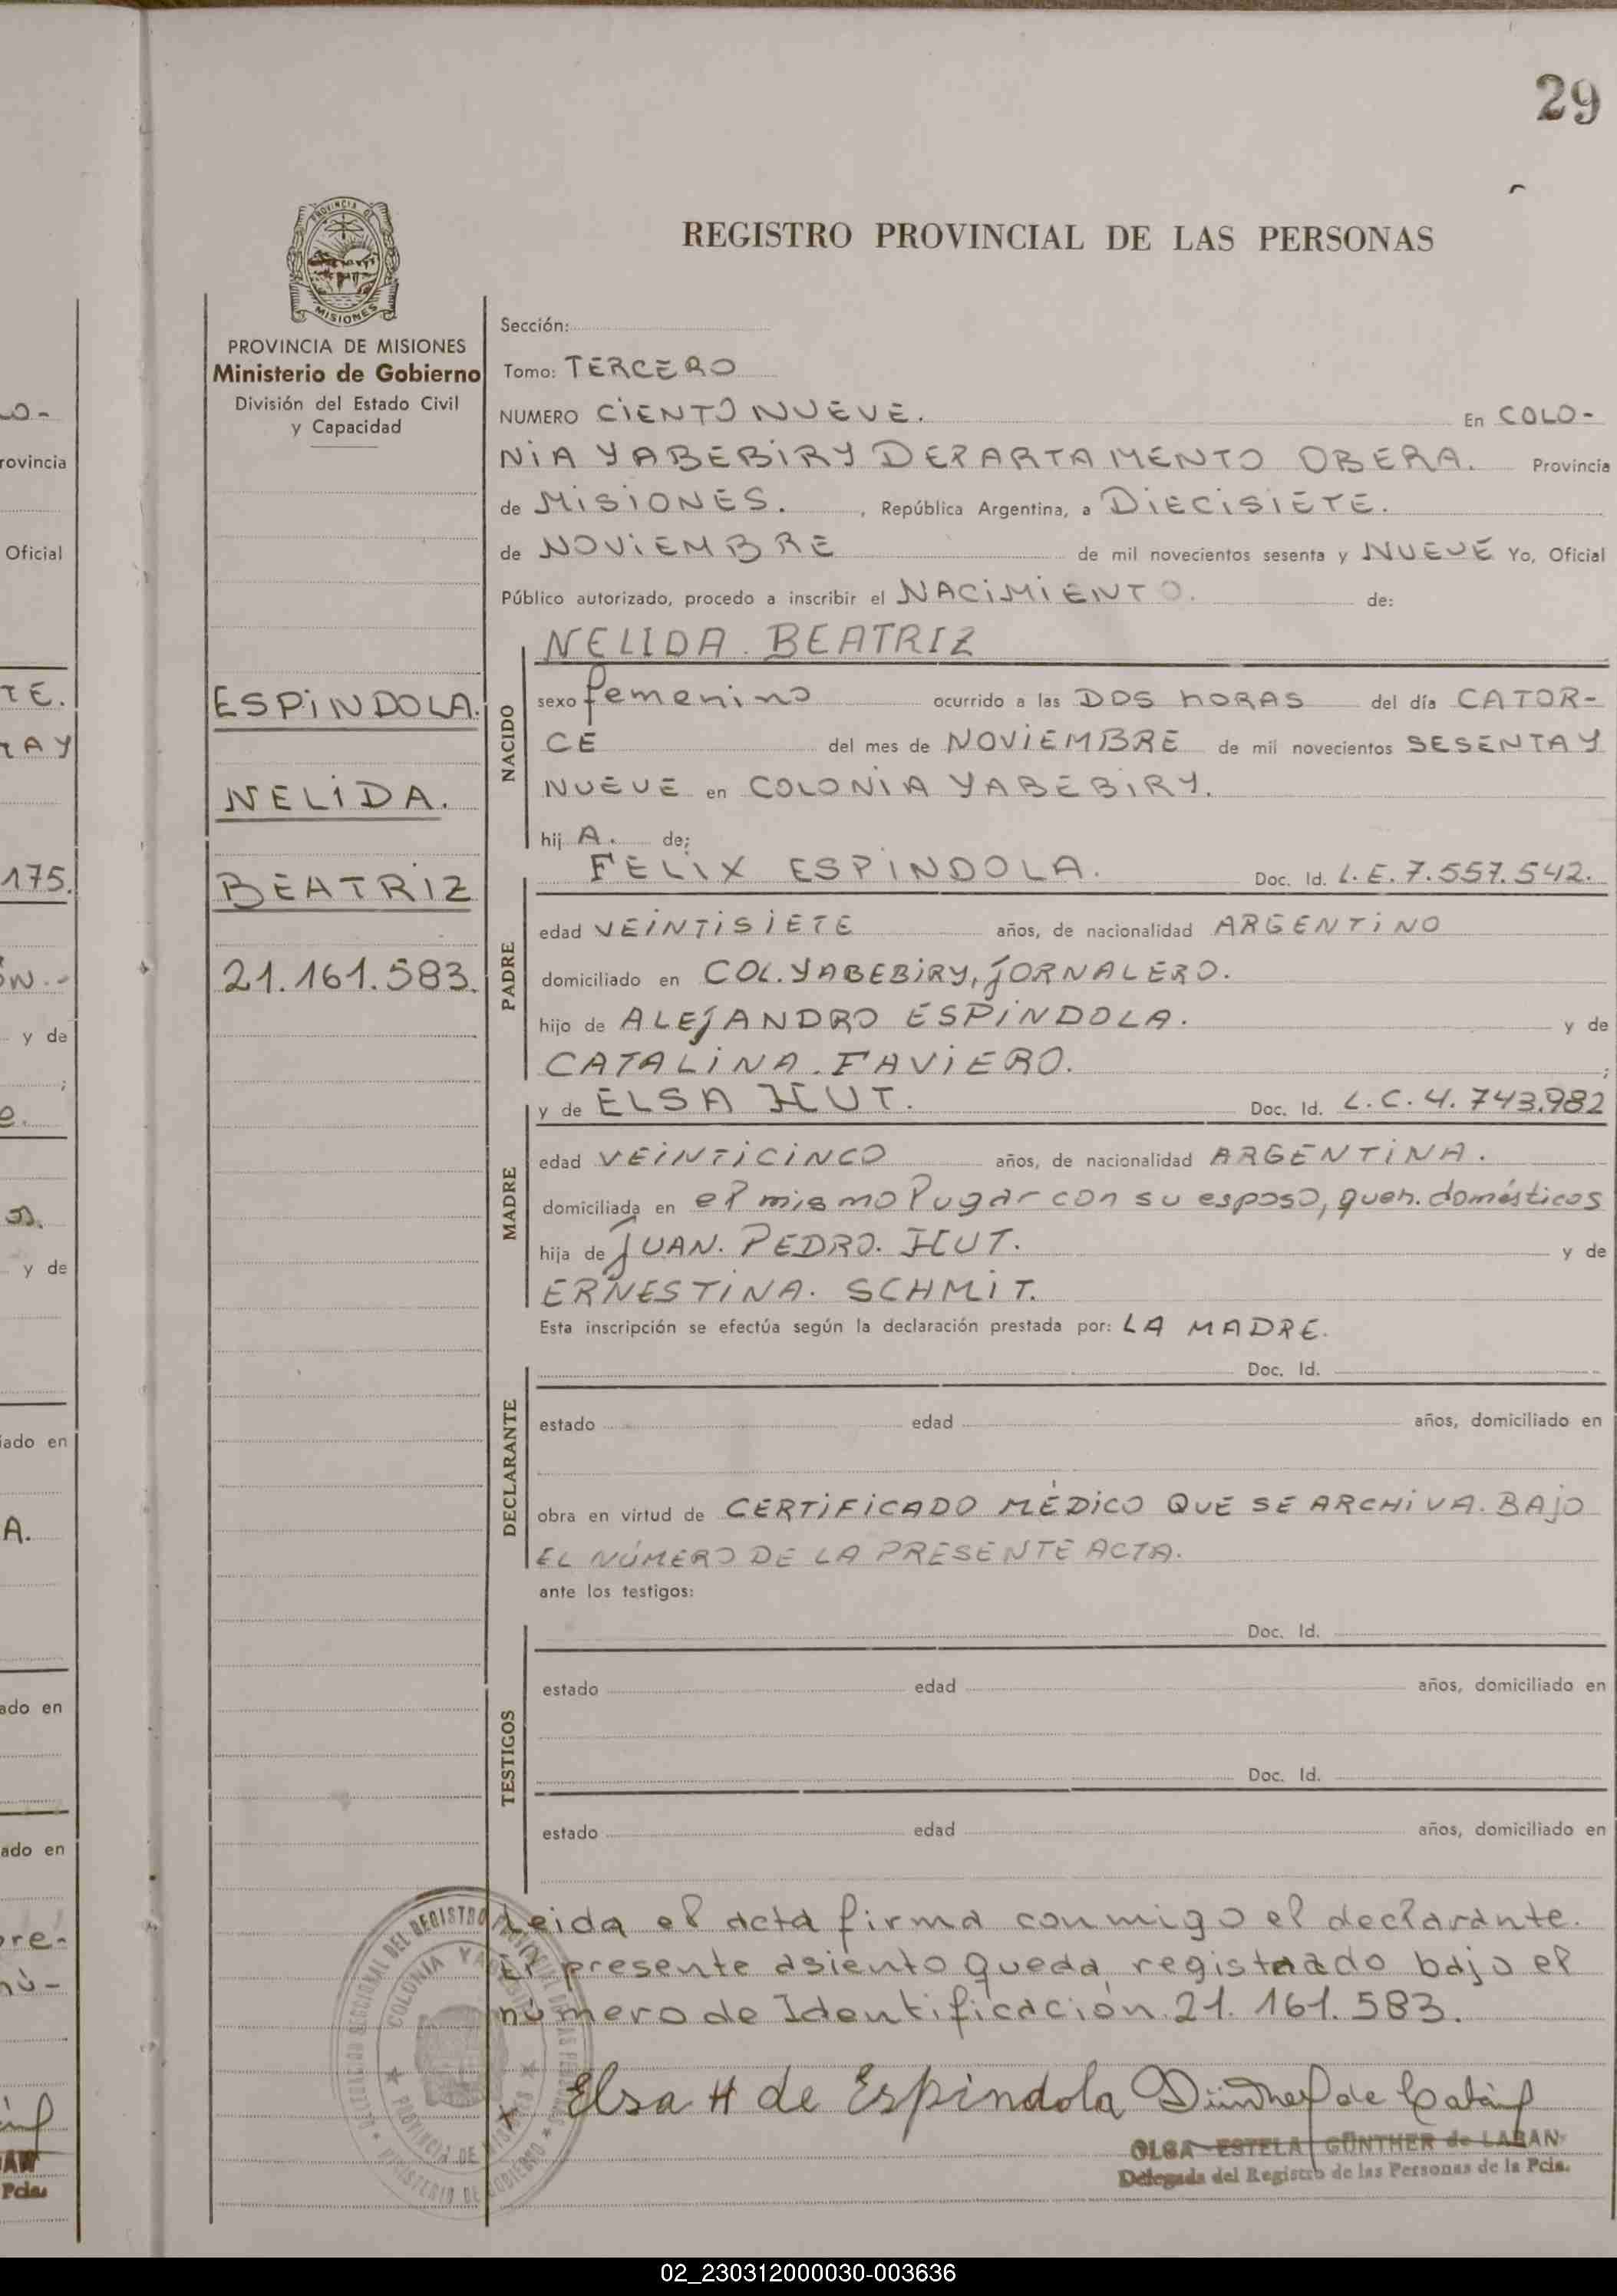 29
REGISTRO PROVINCIAL DE LAS PERSONAS
PROVINCIA DE MISIONES
Ministerio de Gobierno
División del Estado Civil
y Capacidad
ESPINDOLA.
NELIDA.
BEATRIZ
21.161.583.
Sección:
Tomo: TERCERO
NUMERO CIENTO NUEVE. En COLO-
NIA YABEBIRY DEPARTAMENTO OBERA. Provincia
de MISIONES. , República Argentina, a DIECISIETE.
de NOVIEMBRE de mil novecientos sesenta y NUEVE Yo, Oficial
Público autorizado, procedo a inscribir el NACIMIENTO. de:
NACIDO
NELIDA. BEATRIZ
sexo femenino ocurrido a las DOS HORAS del día CATOR-
CE del mes de NOVIEMBRE de mil novecientos SESENTA Y
NUEVE en COLONIA YABEBIRY.
hij A. de;
PADRE
FELIX ESPINDOLA. Doc. Id. L.E.7.557.542.
edad VEINTISIETE años, de nacionalidad ARGENTINO
domiciliado en COL.YABEBIRY, JORNALERO.
hijo de ALEJANDRO ESPINDOLA. y de
CATALINA. FAVIERO. ;
MADRE
y de ELSA HUT. Doc. Id. L.C.4.743.982
edad VEINTICINCO años, de nacionalidad ARGENTINA.
domiciliada en el mismo lugar con su esposo, queh. domésticos
hija de JUAN. PEDRO. HUT. y de
ERNESTINA. SCHMIT.
Esta inscripción se efectúa según la declaración prestada por: LA MADRE.
DECLARANTE
Doc. Id.
estado edad años, domiciliado en
obra en virtud de CERTIFICADO MÉDICO QUE SE ARCHIVA. BAJO
EL NÚMERO DE LA PRESENTE ACTA.
ante los testigos:
TESTIGOS
Doc. Id.
estado edad años, domiciliado en
Doc. Id.
estado edad años, domiciliado en
Leida el acta firma conmigo el declarante.
El presente asiento queda registrado bajo el
número de Identificación 21.161.583.
Elsa H de Espindola
OLGA ESTELA GÜNTHER de LABAN
Delegada del Registro de las Personas de la Pcia.
02_230312000030-003636